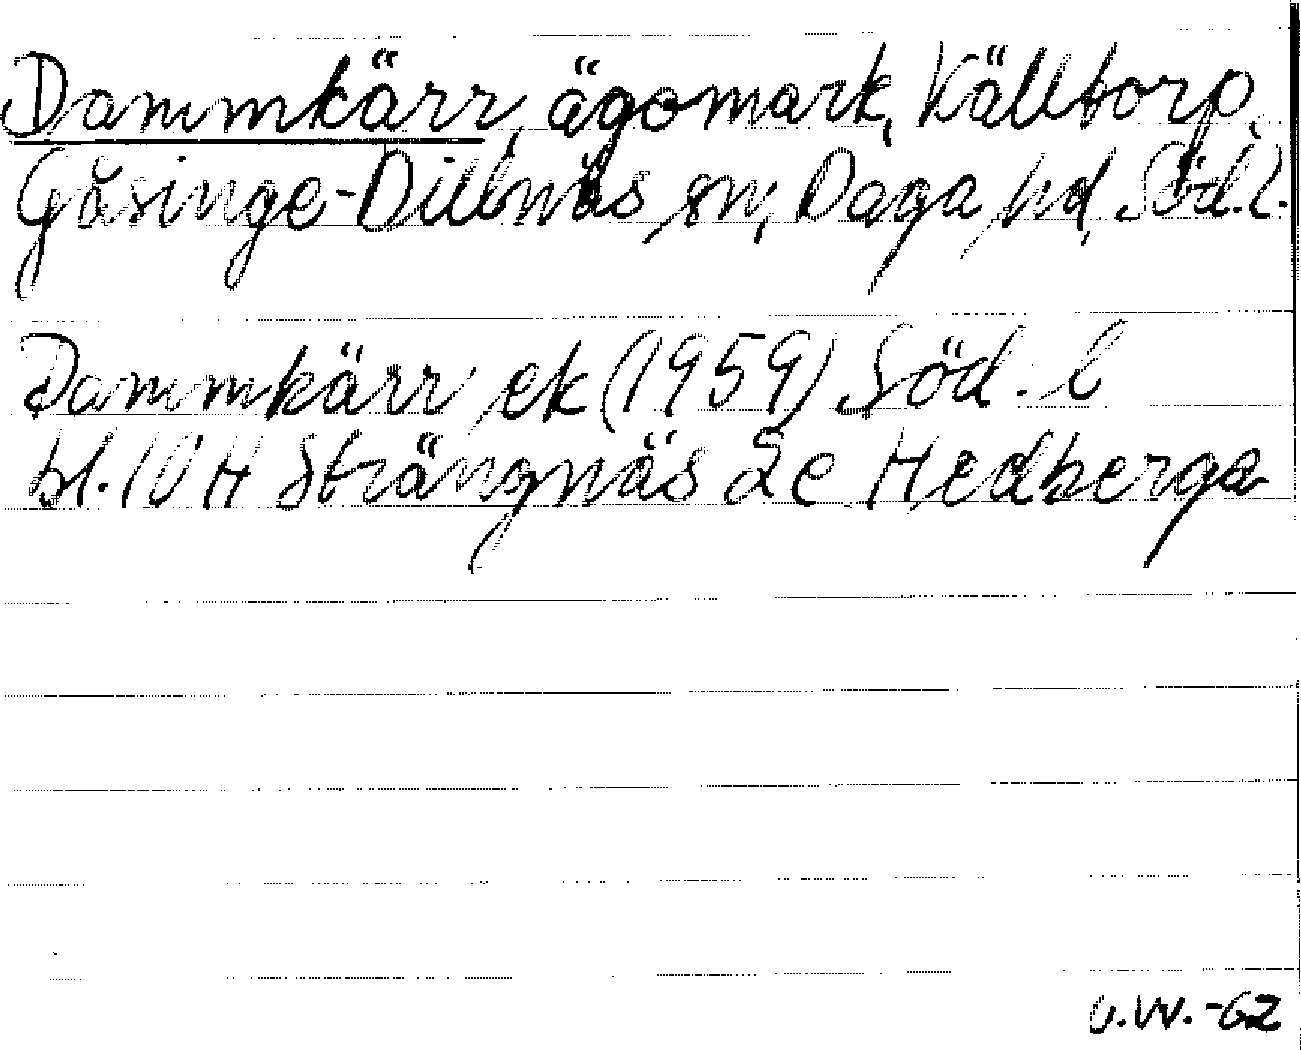 Dammkärr, ägomark, Källtorp,
Gåsinge-Dillnäs sn, Daga hd, Söd.l.
Dammkärr ek (1959) Söd. l
bl. 10 H Strängnäs 2e Hedberga
U.W. -62